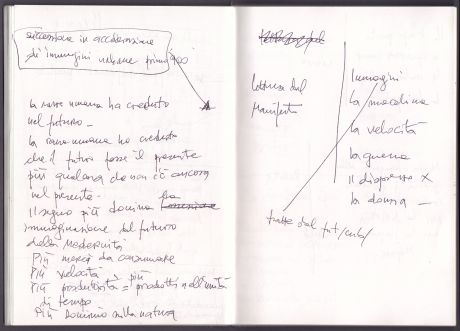 successione in accelerazione
di immagini urbane
la razza umana ha creduto
nel futuro –
la razza umana ha creduto
che il futuro fosse il presente
più qualcosa che non c'è ancora
nel presente –
Il segno più domina la
immaginazione del futuro
della Modernità
Più merci da consumare
Più velocità
Più produttività = più prodotti nell'unità
di tempo
Più dominio sulla natura
lettura del
Manifesto
Immagini
la macchina
la velocità
la guerra
il disprezzo x
la donna –
tratte dal